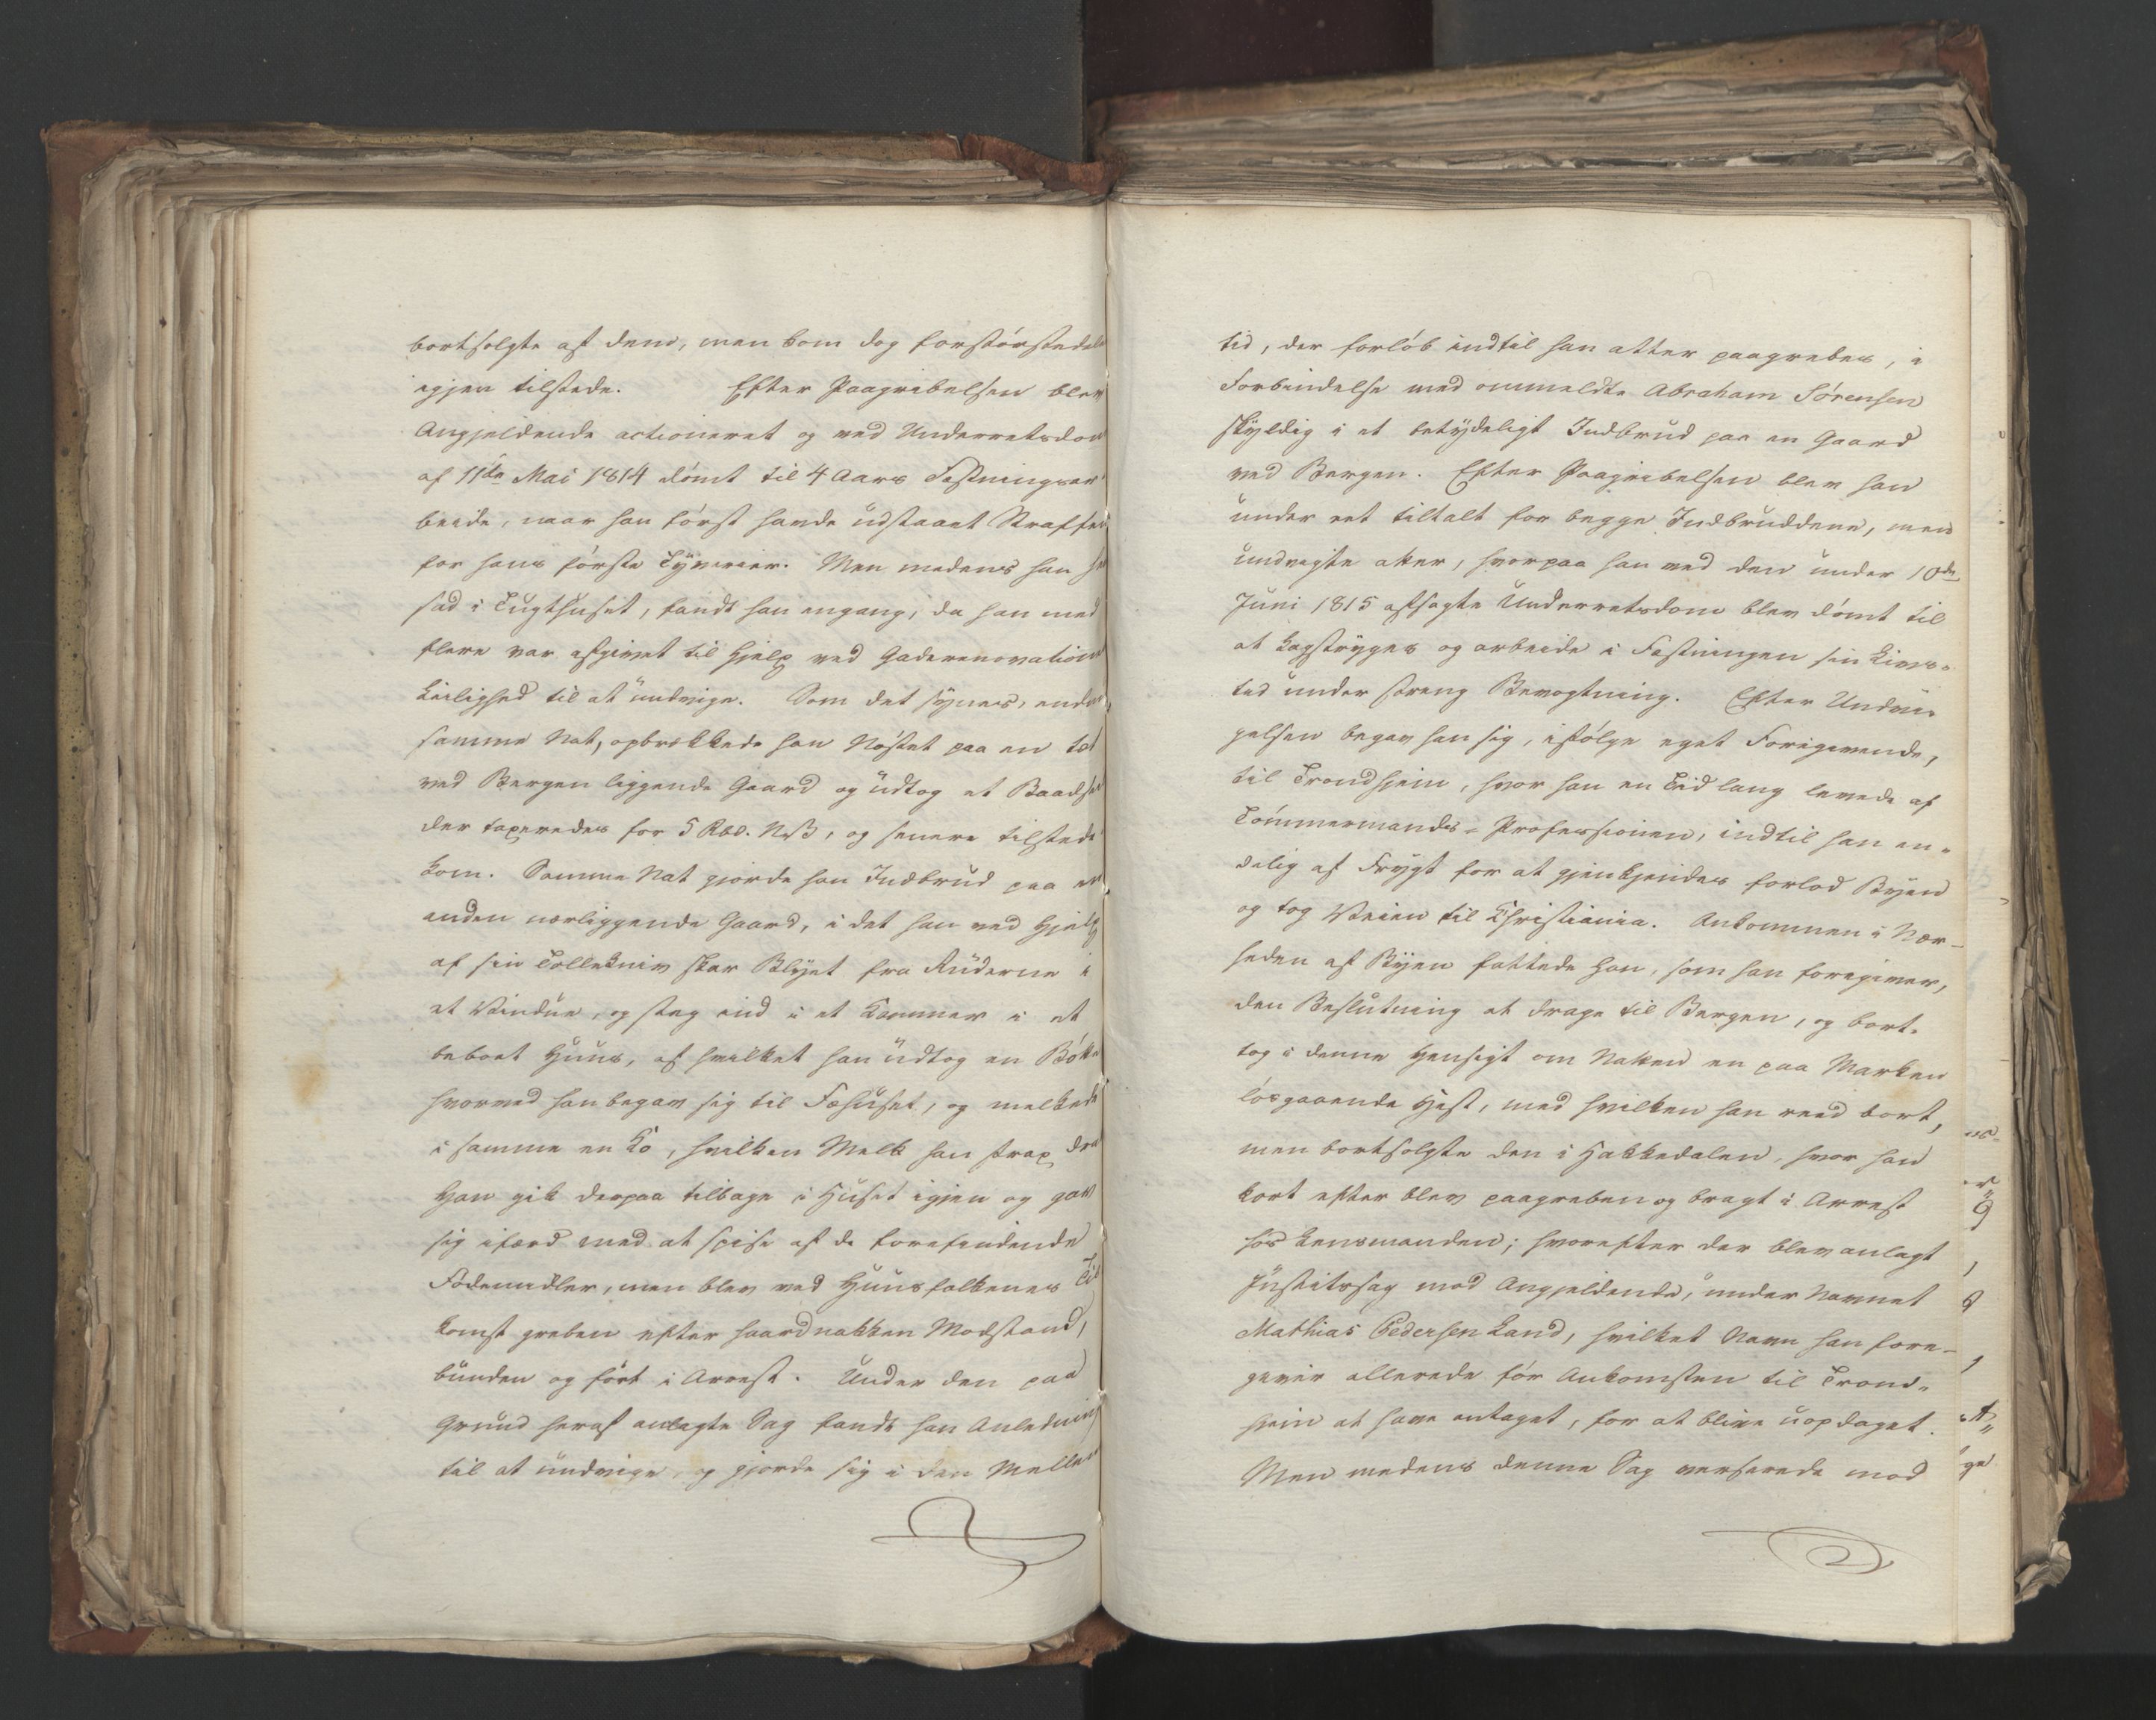 bortsolgte af dem, men kom dog forstørstedelen
igjen tilstede. Efter Paagribelsen blev
Angjeldende actioneret og ved Underretsdom
af 11te Mai 1814 dømt til 4 Aars Fæstningsar-
beide, naar han først havde udstaaet Straffen
for hans første Tyverier. Men medens han
sad i Tugthuset, fandt han engang, da han med
flere var afgivet til Hjelp ved Gaderenovationen
Leilighed til at undvige. Som det synes, endnu
samme Nat, opbrækkede han Nøstet paa en tæt
ved Bergen liggende Gaard og udtog et Baadseil
der taxeredes for 5 Rbd. NB, og senere tilstede-
kom. Samme Nat gjorde han Indbrud paa en
anden nærliggende Gaard, i det han ved Hjelp
af sin Tollekniv skar Blyet fra Ruderne i
et Vindue, og steg ind i et Kammer i et
beboet Huus, af hvilket han udtog en Bøtte
hvorved han begav sig til Fæhuset, og melkede
i samme en Ko, hvilken Melk han strax drak
Han gik derpaa tilbage i Huset igjen og gav
sig ifærd med at spise af de forefindende
Fødemidler, men blev ved Huusfolkenes Til
komst greben efter haardnakken Modstand,
bunden og ført i Arrest. Under den paa
Grund heraf anlagte Sag fandt han Anledning
til at undvige, og gjorde sig i den Mellem
tid, der forløb indtil han atter paagrebes, i
Forbindelse med ommeldte Abraham Sørensen
skyldig i et betydeligt Indbrud paa en Gaard
ved Bergen. Efter Paagribelsen blev han
under eet tiltalt for begge Indbruddene, men
undvigte atter, hvorpaa han ved den under 10de
Juni 1815 afsagte Underretsdom blev dømt til
at kagstryges og arbeide i Fæstningen sin Livs-
tid under streng Bevogtning. Efter Undvi-
gelsen begav han sig, ifølge eget Foregivende,
til Trondhjem, hvor han en Tid lang levede af
Tømmermands-Professionen, indtil han en-
delig af Frygt for at gjenkjendes forlod Byen
og tog Veien til Christiania. Ankommen i Nær-
heden af Byen fattede han, som han foregiver,
den Beslutning at drage til Bergen, og bort-
tog i denne Hensigt om Natten en paa Marken
løsgaaende Hest, med hvilken han reed bort,
men bortsolgte den i Hakkedalen, hvor han
kort efter blev paagreben og bragt i Arrest
hos Lensmanden; hvorefter der blev anlagt
Justitssag mod Angjeldende, under Navnet
Mathias Pedersen Land, hvilket Navn han fore-
giver allerede før Ankomsten til Trond-
hjem at have antaget, for at blive uopdaget.
Men medens denne Sag verserede mod